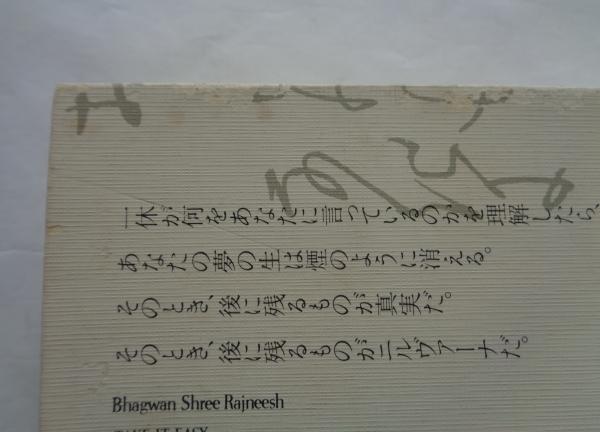 一休が何をあなたに言っているのかを理解したら、
あなたの夢の生は煙のように消える。
そのとき、後に残るものが真実だ。
そのとき、後に残るものがニルヴァーナだ。
Bhagwan Shree Rajneesh
TAKE IT EASY